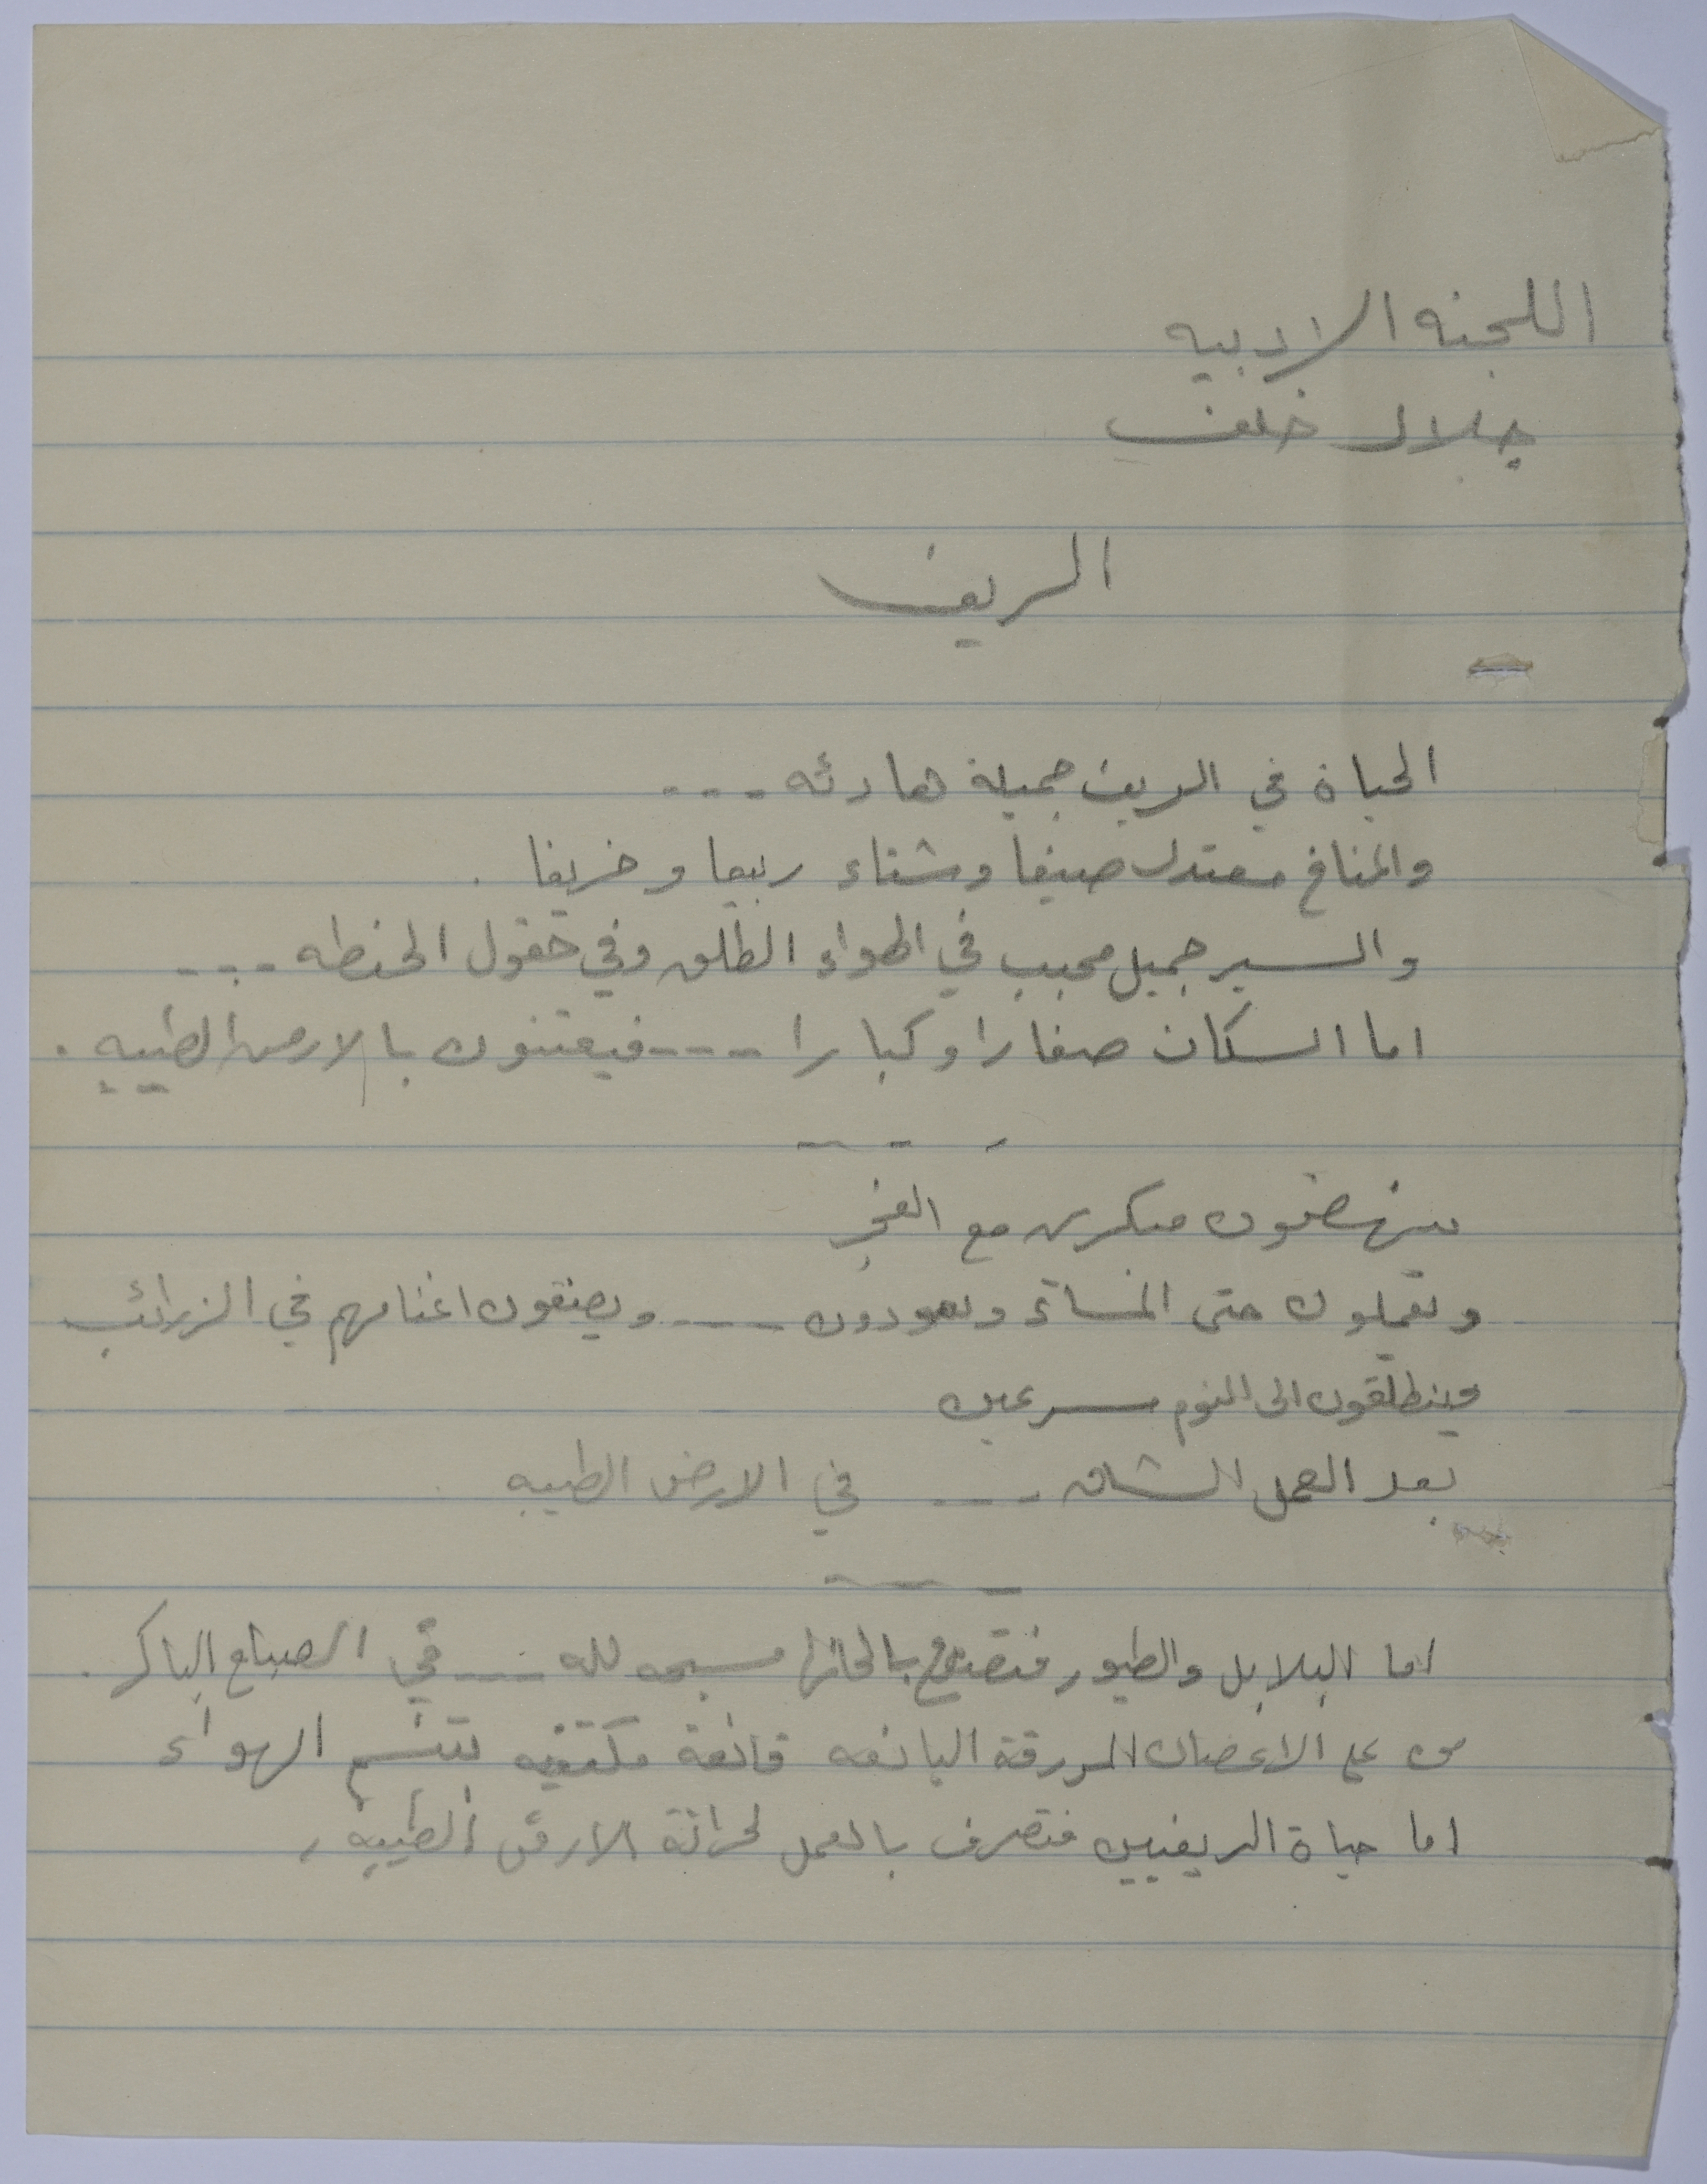 اللجنه الادبيه
جلال خلف
الريف
الحياة في الريف جميلة هادئه ---
والمناخ معتدل صيفا وشتاء ربيعا وخريفا .
والسير جميل محبب في الهواء الطلق وفي حقول الحنطه ---
اما السكان صغارا وكبارا ---- فيعتنون بالارض الطيبه .
- - -
ينهضون مبكرين مع الفجر
ويعملون حتى المساء ويعودون ---- ويضعون اغنامهم في الزرائب
وينطلقون الى النوم مسرعين
بعد العمل الشاق --- في الارض الطيبه
اما البلابل والطيور فتصدح بالحانها مسبحه لله ---- في الصباح الباكر .
من على الاغصان المورقة اليانعه قانعة مكتفيه بتنسم الهواء
اما حياة الريفيين فتصرف بالعمل لحراثة الارض الطيبه .